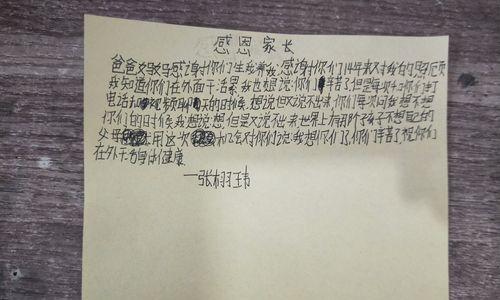 感恩家长
爸爸妈妈感谢你们生我养我,感谢你们14年来对我的照顾
我知道你们在外面干活累我也想说:你们辛苦了但是每次和你们打
电话和视频聊天的时候,想说但又说不出来,你们每次问我想不想
你们的时候我想说想,但是又说不出来世界上有那个孩子不想自己的
父母 用这次 机会对你们说:我想你们了,你们辛苦了,祝你们
在外平安身体健康
—张栩玮